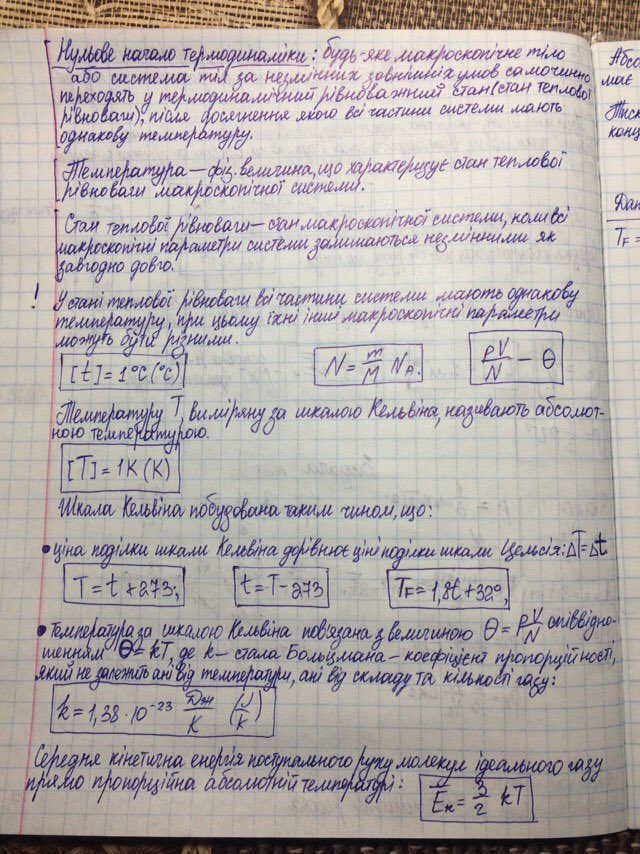 Нульове начало термодинаміки: будь-яке макроскопічне тіло
або система тіл за незмінних зовнішніх умов самочинно
переходять у термодинамічний рівноважний стан (стан теплової
рівноваги), після досягнення якого всі частини системи мають
однакову температуру.
Температура – фіз. величина, що характеризує стан теплової
рівноваги макроскопічної системи.
Стан теплової рівноваги – стан макроскопічної системи, коли всі
макроскопічні параметри системи залишаються незмінними як
завгодно довго.
! У стані теплової рівноваги всі частини системи мають однакову
температуру, при цьому їхні інші макроскопічні параметри
можуть бути різними.
[t] = 1°C (°C) N = m/M N_A. pV/N – Θ
Температуру T, виміряну за шкалою Кельвіна, називають абсолют-
ною температурою.
[T] = 1K (K)
Шкала Кельвіна побудована таким чином, що:
• ціна поділки шкали Кельвіна дорівнює ціні поділки шкали Цельсія: ΔT = Δt
T = t + 273; t = T – 273 T_F = 1,8t + 32°,
• температура за шкалою Кельвіна пов'язана з величиною Θ = pV/N співвідно-
шенням Θ = kT, де k – стала Больцмана – коефіцієнт пропорційності,
який не залежить ані від температури, ані від складу та кількості газу:
k = 1,38 · 10⁻²³ Дж/К (J/k)
Середня кінетична енергія поступального руху молекул ідеального газу
прямо пропорційна абсолютній температурі: Ē_к = 3/2 kT
Абсо
має
Тиск
конц
Дан
T_F =